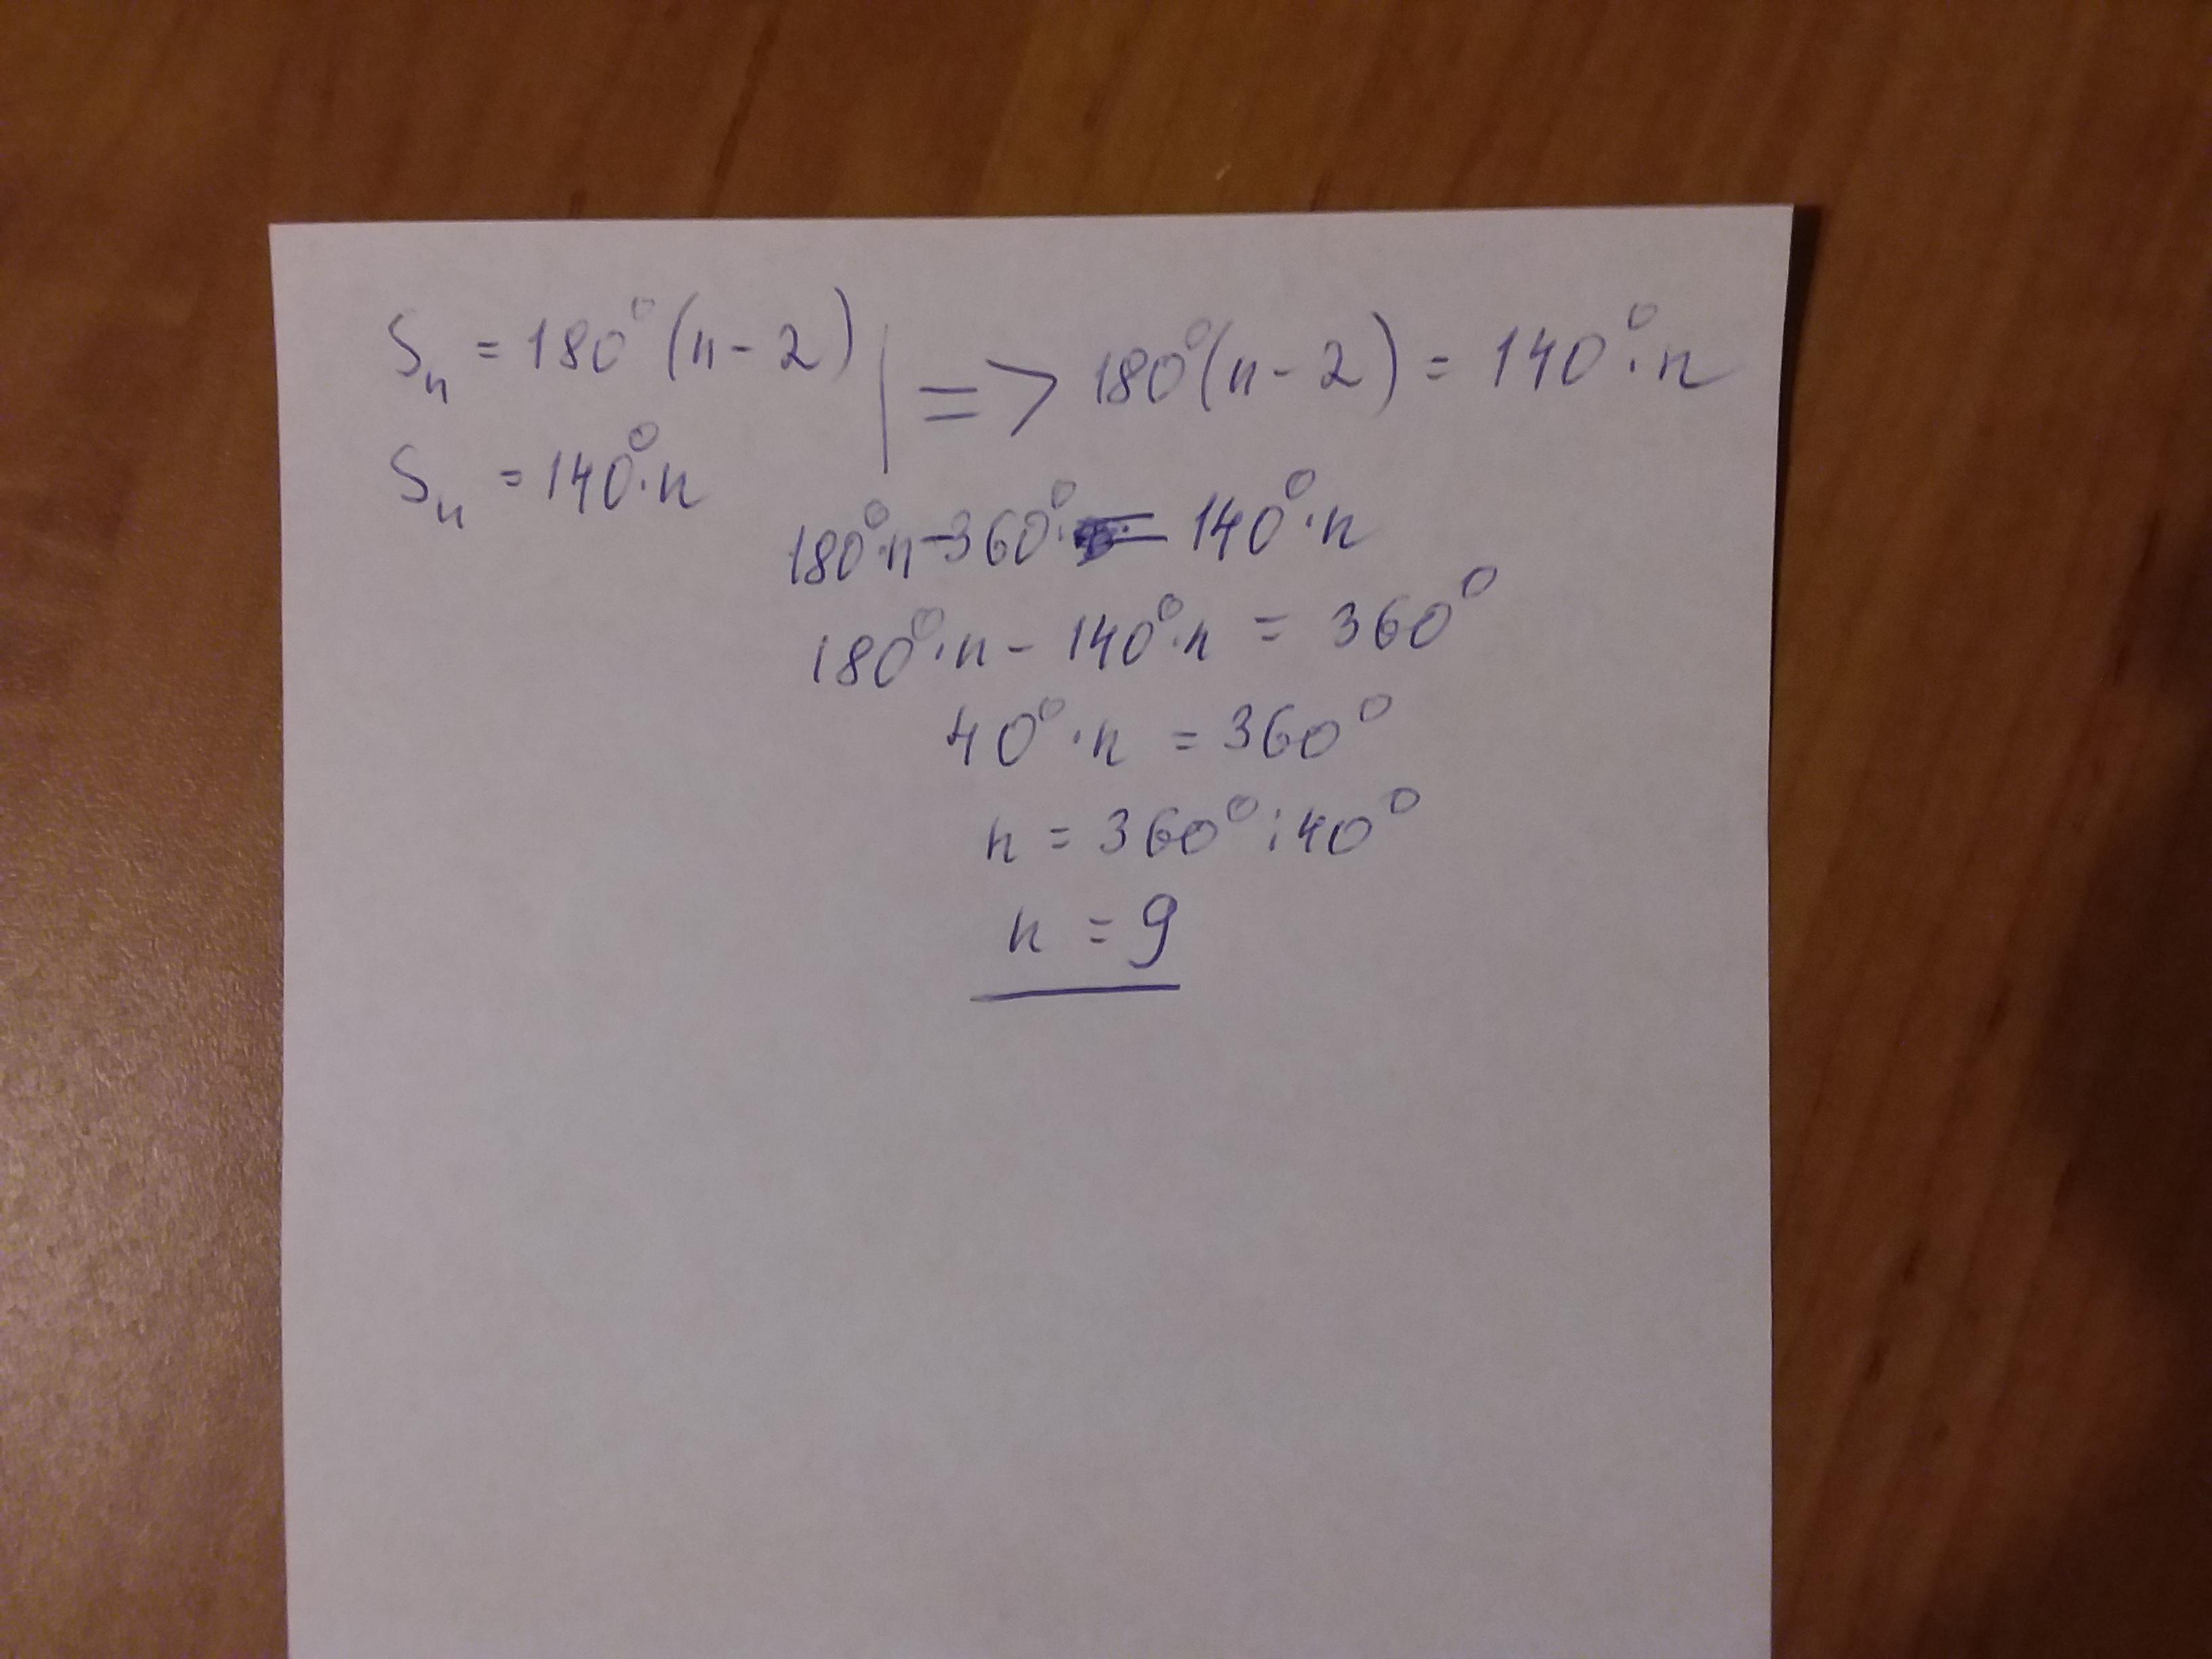 Sn = 180°(n-2) | => 180°(n-2) = 140°·n
Sn = 140°·n
180°·n-360° = 140°·n
180°·n - 140°·n = 360°
40°·n = 360°
n = 360° : 40°
n = 9